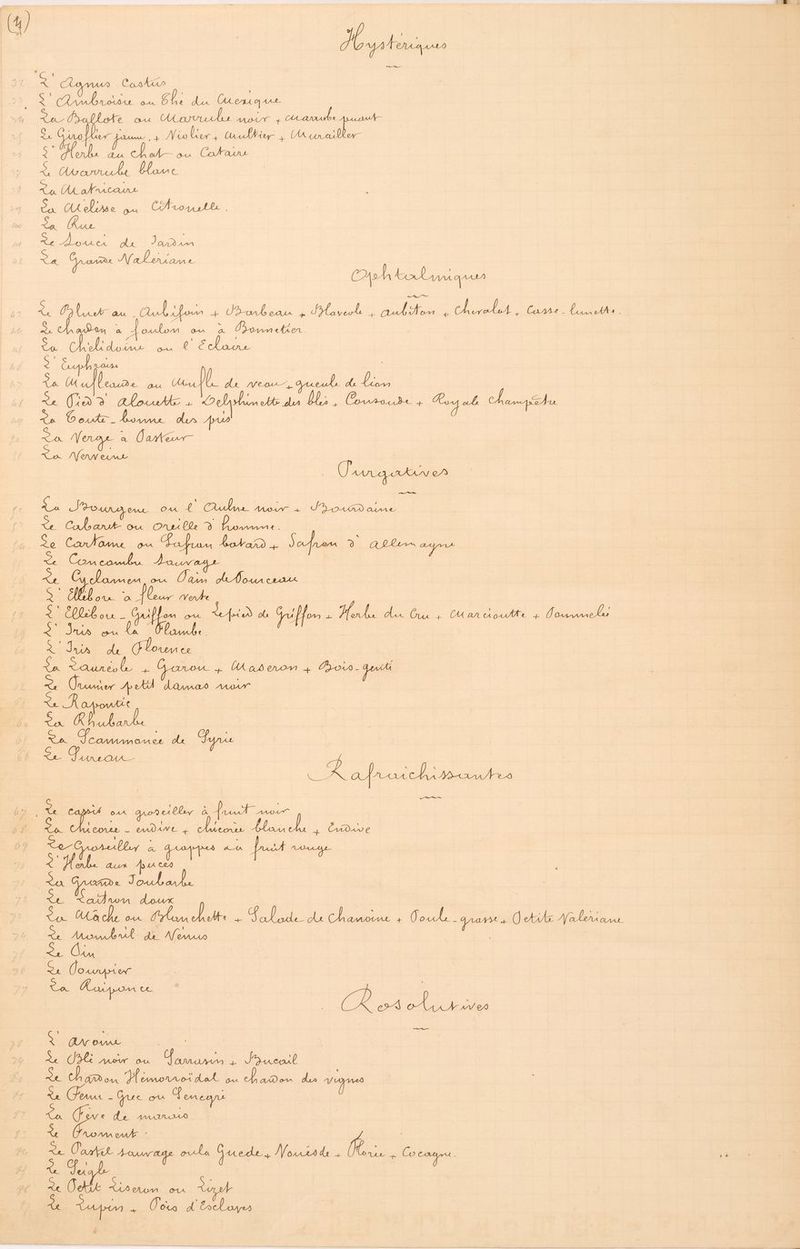 (4)
Hystériques
L'Agnus Castus
L'Ambroisie ou Thé du Mexique
La Ballote ou Marrube noir + Marrube puant
Le Giroflier jaune + Violier + Muraillier
L'Herbe au chat ou Cataire
Le Marrube blanc
La Matricaire
La Mélisse ou Citronelle.
La Rue
Le Souci de Jardin
La Grande Valériane
Ophtalmiques
Le Bluet ou Aubifoin + Barbeau + Blavéole + aubiton + Chevalot + Casse-lunette.
Le chardon à foulon ou à Bonnetier
La Chélidoine ou l'Eclaire
L'Euphraise
La Mufleaude ou Mufle de veau + gueule de lion
Le Pied d'alouette + Delphinette des blés + Consoude + Royale champêtre
La Toute-bonne des prés
La Verge à Pasteur
La Verveine
Purgatives
La Bourgene ou l'Aulne noir + Bourdaine
Le Cabaret ou Oreille d'homme.
Le Cartame ou Safran batard + Safran d'allemagne
Le Concombre Sauvage
Le Cyclamen ou Pain de Pourceau
L'Ellébore à fleur verte
L'Ellébore-Griffon ou Le pied de Griffon + Herbe du Cru + Marcioutte + Pommelié
L'Iris ou la Flambe
L'Iris de Florence
La Lauréole + Garou + Maseron + Bois-genti
Le Prunier petit damas noir
Le Rapontic
La Rhubarbe
La Scammonée de Syrie
Le Sureau
Rafraichissantes
Le cassis ou groseiller à fruit noir
La Chicorée-endive + chicorée blanche + Endive
Le Groseiller à grappes au fruit rouge
L'Herbe aux puces
La Grande Joubarbe
Le Laitron doux
La Mâche ou Blanchette + Salade de Chanoine + Poule-grasse + Petite Valériane
Le Nombril de Vénus
Le Pin
Le Pourpier
La Raiponce
Resolutives
L'avoine
Le Blé noir ou Sarrasin + Bucail
Le chardon Hémorroïdal ou chardon des vignes
Le Fenu-Grec ou Senegré
La Fève de marais
Le Froment
Le Pastel sauvage ou la Guede + Vouède + Cocagne.
Le Seigle
Le Petit Liseron ou Lizet
Le Lupin + Pois d'Esclaves